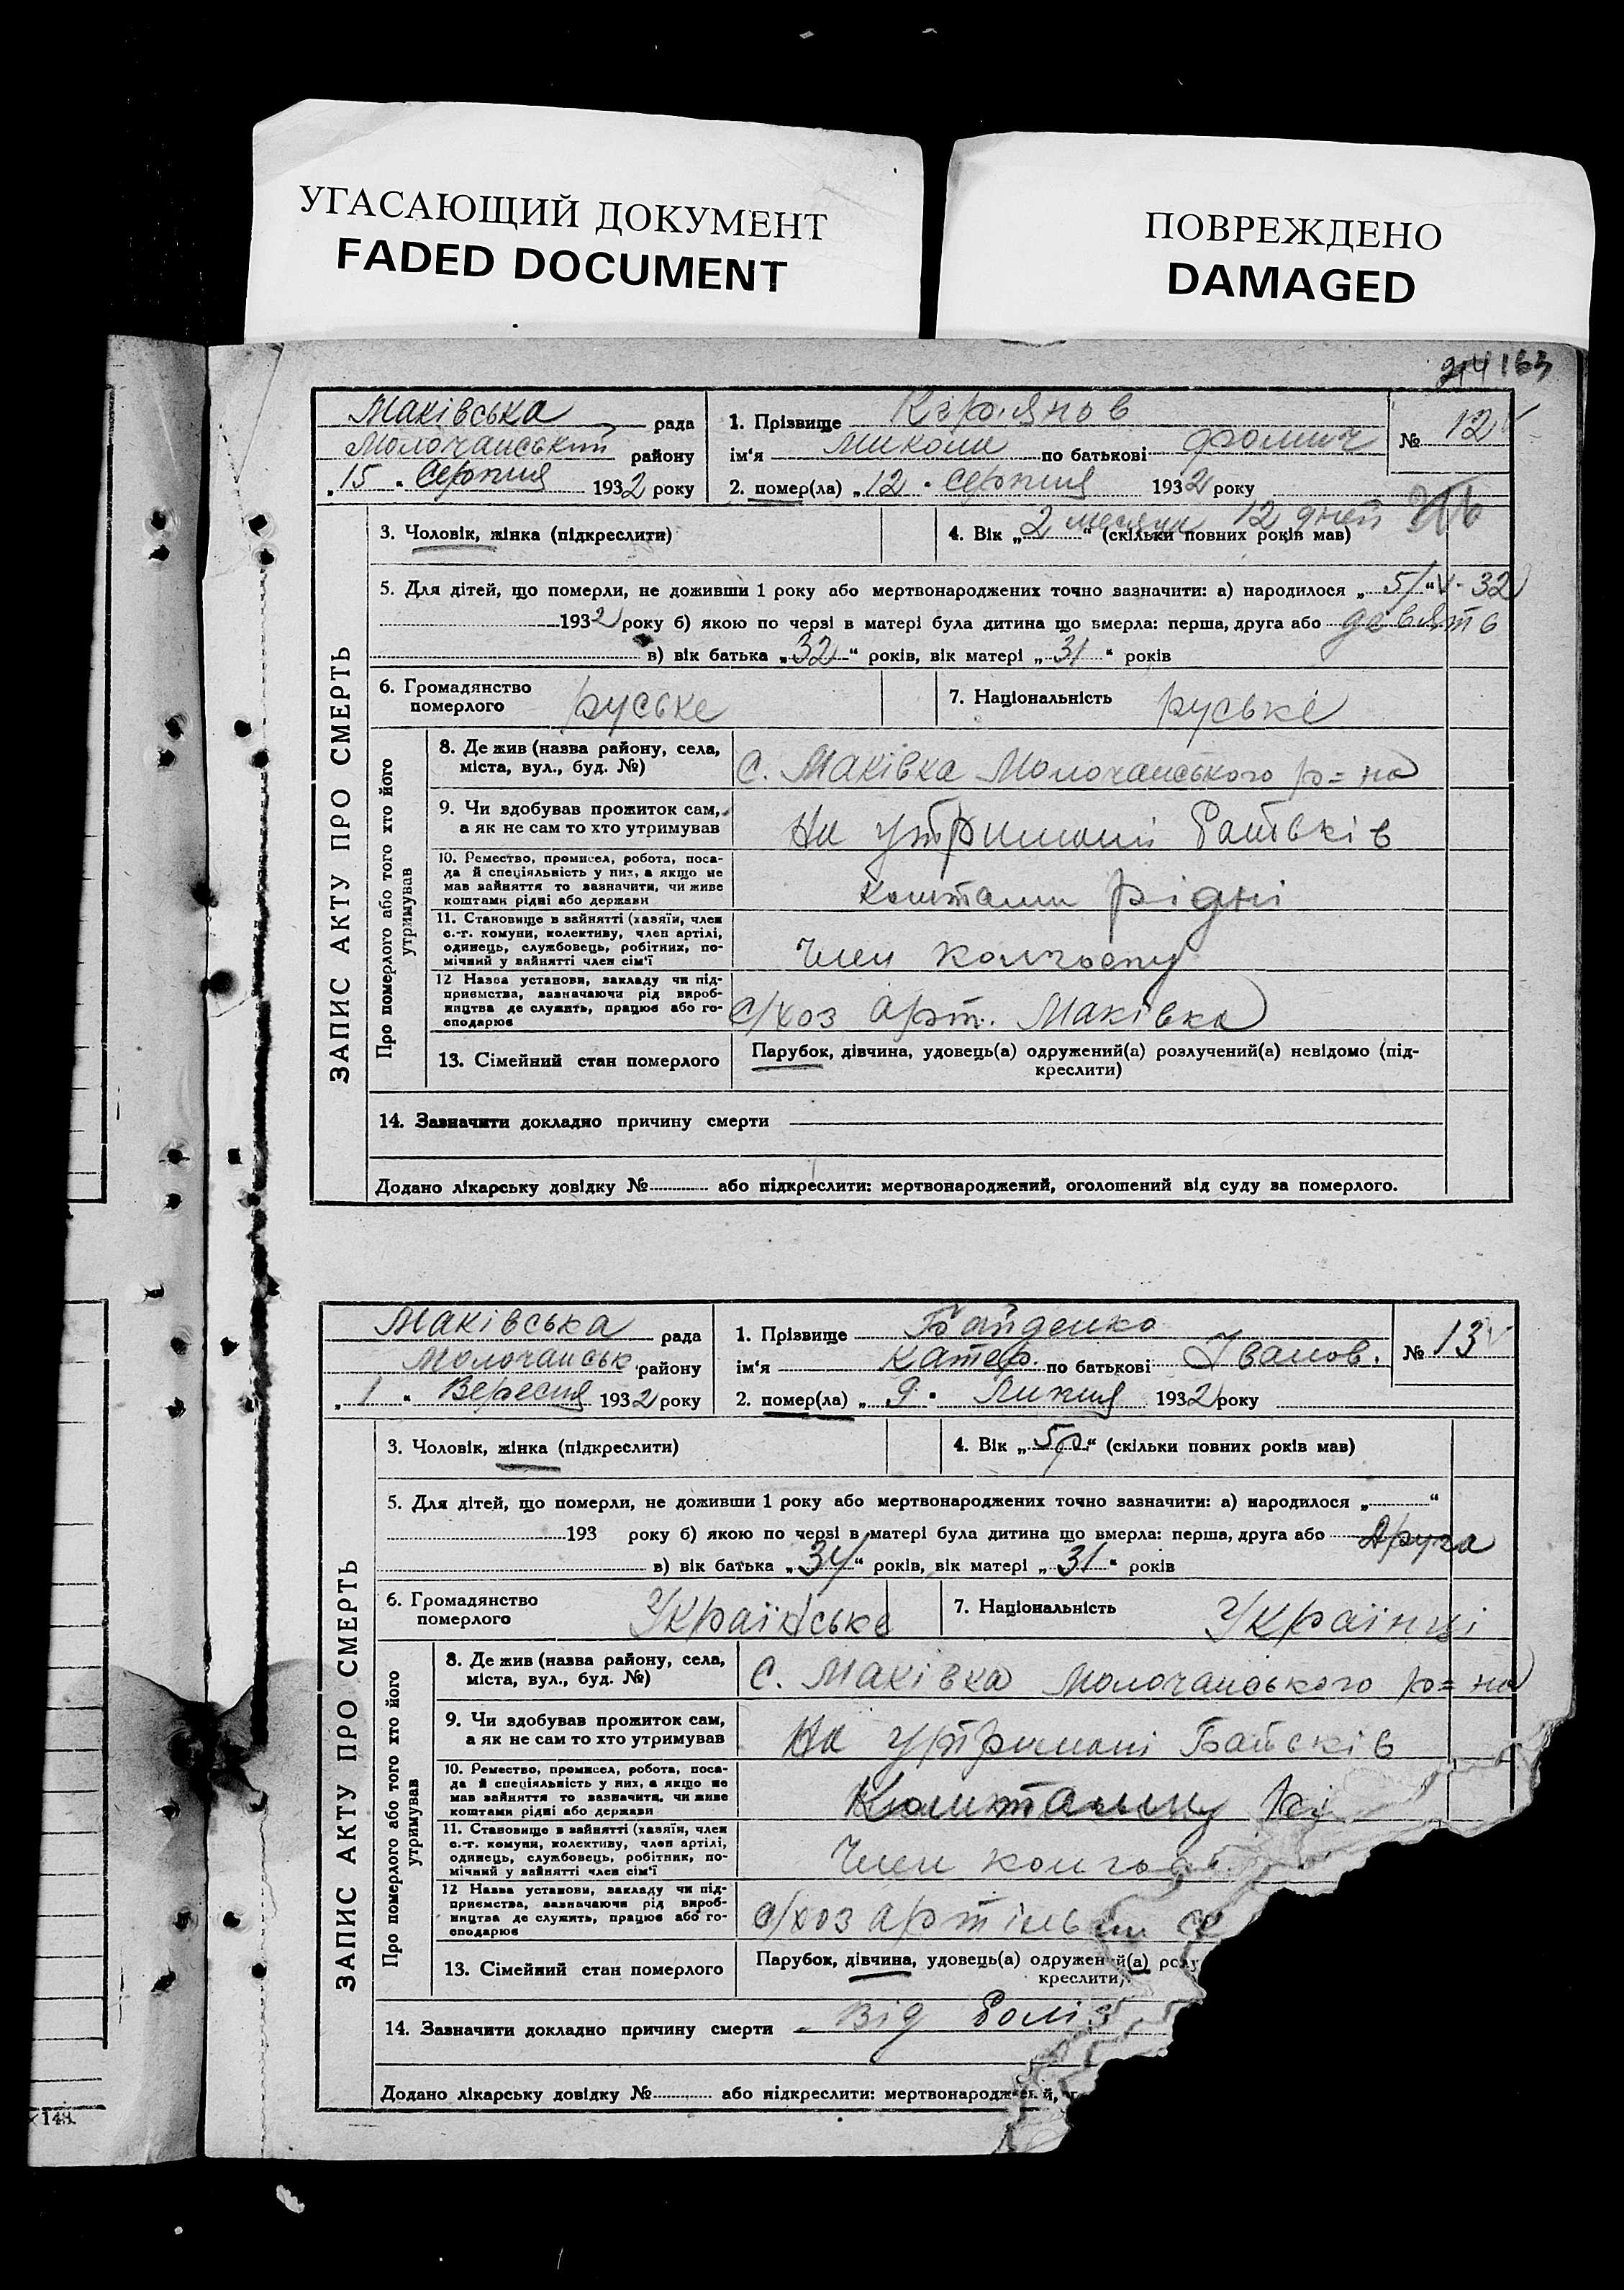 УГАСАЮЩИЙ ДОКУМЕНТ
FADED DOCUMENT
ПОВРЕЖДЕНО
DAMAGED
214 163
ЗАПИС АКТУ ПРО СМЕРТЬ
Маківська рада
Молочанський району
„15 " Серпня 1932 року
1. Прізвище
ім'я Микола по батькові Фомич
2. помер(ла) „12 " серпня 1932 року
№ 12
3. Чоловік, жінка (підкреслити)
4. Вік „2 месяця 12 дней" (скільки повних років мав)
5. Для дітей, що померли, не доживши 1 року або мертвонароджених точно зазначити: а) народилося „5/"V- 32
1932 року б) якою по черзі в матері була дитина що вмерла: перша, друга або девять
в) вік батька „32" років, вік матері „31" років
6. Громадянство
померлого руське
7. Національність руські
Про померлого або того хто його
утримував
8. Де жив (назва району, села,
міста, вул., буд. №)
С. Маківка Молочанського ро=на
9. Чи здобував прожиток сам,
а як не сам то хто утримував
На утримані батьків
10. Ремество, промисел, робота, поса-
да й спеціяльність у них, а якщо не
мав зайняття то зазначити, чи живе
коштами рідні або держави
коштами рідні
11. Становище в зайнятті (хазяїн, член
с.-г. комуни, колективу, член артілі,
одинець, службовець, робітник, по-
мічний у зайнятті член сім'ї
Член колгоспу
12 Назва установи, закладу чи під-
приємства, зазначаючи рід вироб-
ництва де служить, працює або го-
сподарює
с/хоз арт. Маківка
13. Сімейний стан померлого
Парубок, дівчина, удовець(а) одружений(а) розлучений(а) невідомо (під-
креслити)
14. Зазначити докладно причину смерти
Додано лікарську довідку № або підкреслити: мертвонароджений, оголошений від суду за померлого.
ЗАПИС АКТУ ПРО СМЕРТЬ
Маківська рада
Молочанськ. району
„1 " Вересня 1932 року
1. Прізвище Байденко
ім'я Катер. по батькові Іванов.
2. помер(ла) „9 " Липня 1932 року
№ 13
3. Чоловік, жінка (підкреслити)
4. Вік „5р" (скільки повних років мав)
5. Для дітей, що померли, не доживши 1 року або мертвонароджених точно зазначити: а) народилося „ "
193 року б) якою по черзі в матері була дитина що вмерла: перша, друга або друга
в) вік батька „34" років, вік матері „31" років
6. Громадянство
померлого Українське
7. Національність Українці
Про померлого або того хто його
утримував
8. Де жив (назва району, села,
міста, вул., буд. №)
С. Маківка Молочанського ро=на
9. Чи здобував прожиток сам,
а як не сам то хто утримував
На утримані Батьків
10. Ремество, промисел, робота, поса-
да й спеціяльність у них, а якщо не
мав зайняття то зазначити, чи живе
коштами рідні або держави
11. Становище в зайнятті (хазяїн, член
с.-г. комуни, колективу, член артілі,
одинець, службовець, робітник, по-
мічний у зайнятті член сім'ї
Член
12 Назва установи, закладу чи під-
приємства, зазначаючи рід вироб-
ництва де служить, працює або го-
сподарює
с/хоз артіль
13. Сімейний стан померлого
Парубок, дівчина, удовець(а) одружений(а) розлу
креслити)
14. Зазначити докладно причину смерти Від
Додано лікарську довідку № або підкреслити: мертвонароджений,
148.